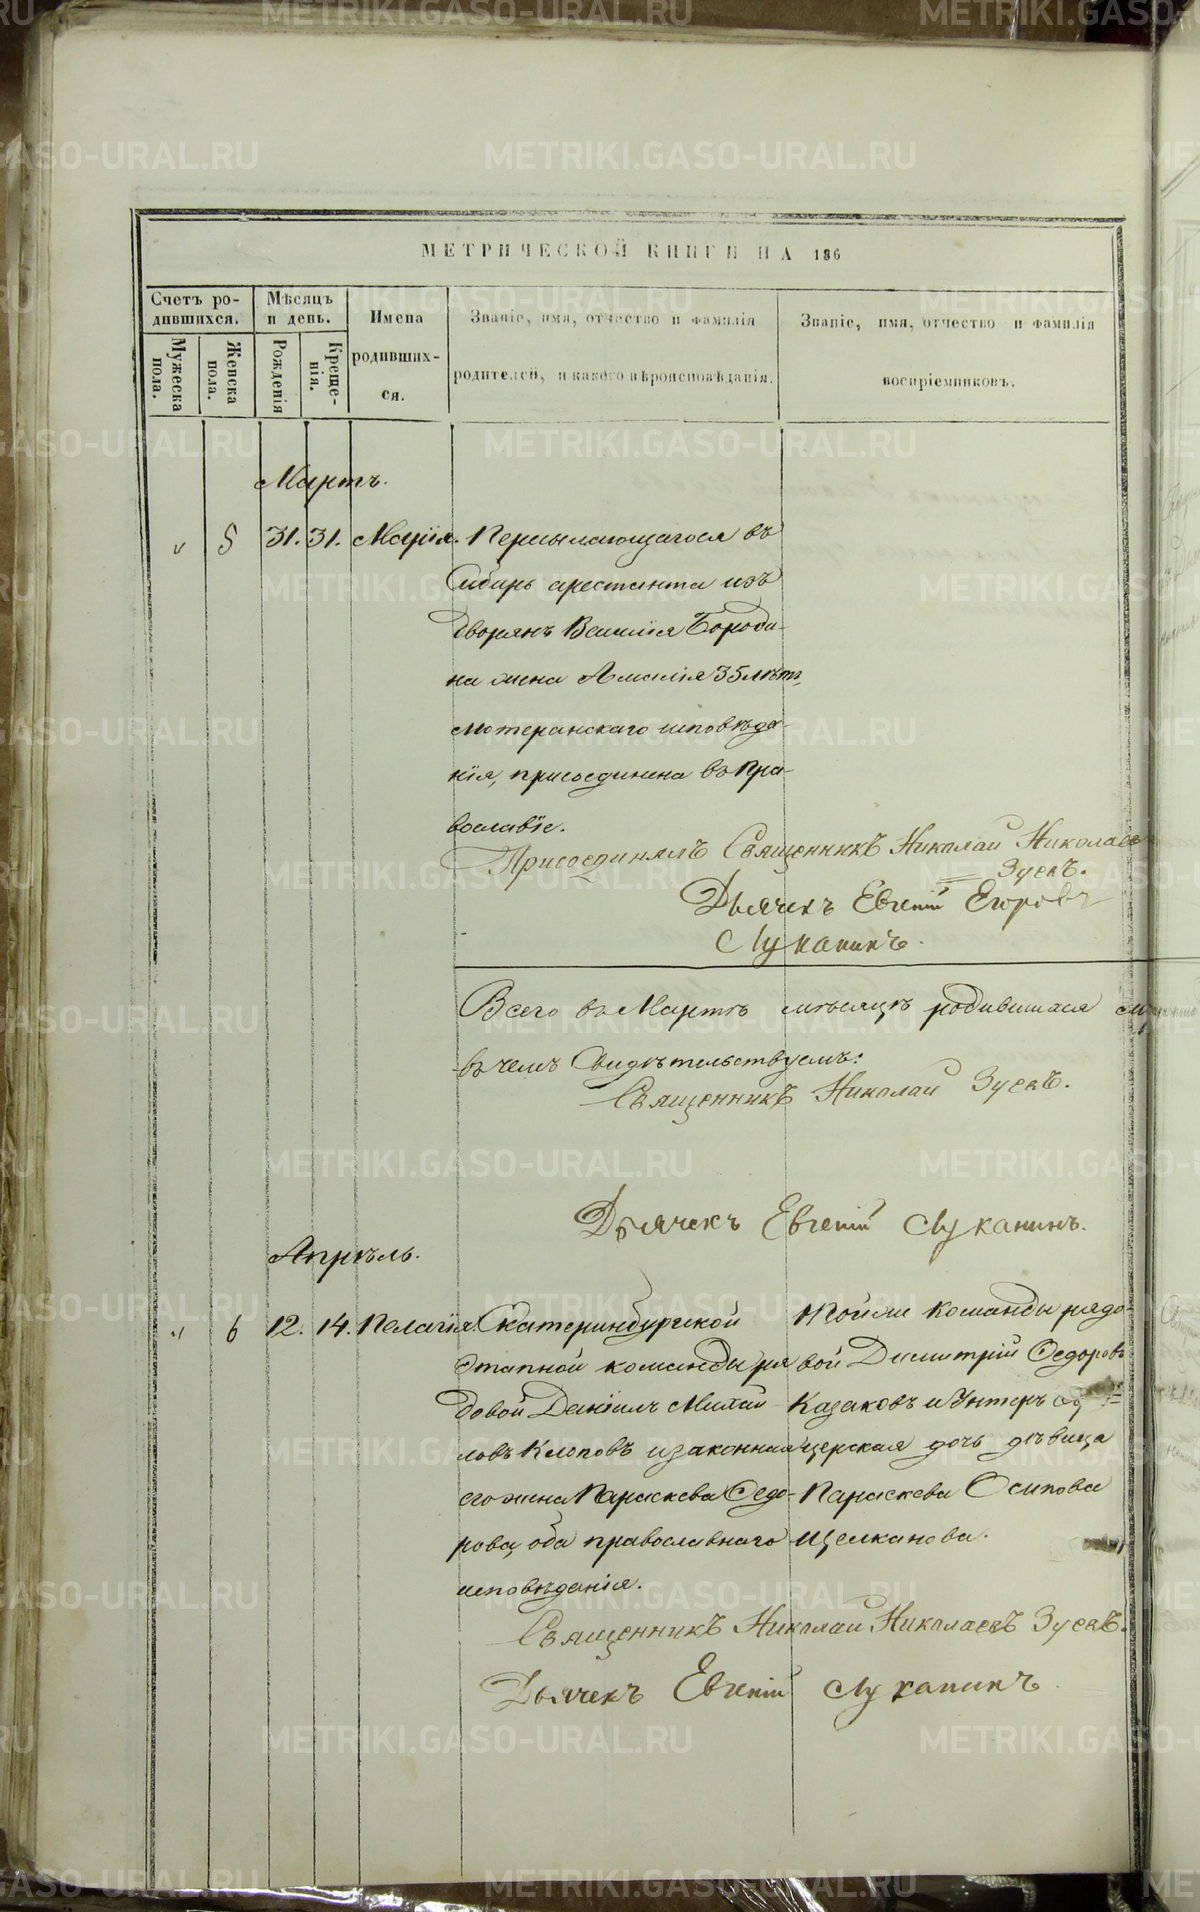 МЕТРИЧЕСКОЙ КНИГИ НА 186
Счетъ ро-
дившихся.
Мужеска пола.
Женска пола.
Мѣсяцъ
и день.
Рожденія
Креще-
нія.
Имена
родивших-
ся.
Званіе, имя, отчество и фамилія
родителей, и какого вѣроисповѣданія.
Званіе, имя, отчество и фамилія
воспріемниковъ.
Мартъ.
" 5 31. 31. Марія. Пересылающагося въ
Сибирь арестанта изъ
дворянъ Василія Бороди-
на жена Амалія 35 лѣтъ,
лютеранскаго исповѣда-
нія, присоединена въ Пра-
вославіе.
Присоединялъ Священникъ Николай Николаевъ
Зуевъ.
Дьячекъ Евгеній Егоровъ
Луканинъ.
Всего въ Мартѣ мѣсяцѣ родившихся
въ чемъ Свидѣтельствуемъ:
Священникъ Николай Зуевъ.
Дьячекъ Евгеній Луканинъ.
Апрѣль.
" 6 12. 14. Пелагія. Екатеринбургской
Этапной команды ря
довой Даніилъ Михай
ловъ Клоповъ и законная
его жена Параскева Ѳедо-
рова, оба православнаго
исповѣданія.
Той же команды рядо-
вой Димитрій Ѳедоровъ
Казаковъ и Унтеръ
церская дочь дѣвица
Параскева Осипова
Щелканова.
Священникъ Николай Николаевъ Зуевъ.
Дьячекъ Евгеній Луканинъ
METRIKI.GASO-URAL.RU